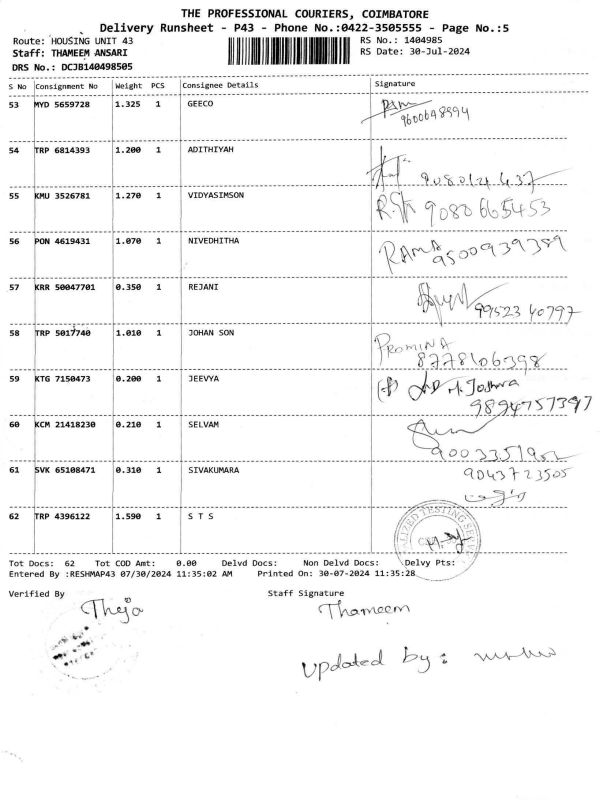 THE PROFESSIONAL COURIERS, COIMBATORE
Delivery Runsheet - P43 - Phone No.:0422-3505555 - Page No.:5
Route: HOUSING UNIT 43 RS No.: 1404985
Staff: THAMEEM ANSARI RS Date: 30-Jul-2024
DRS No.: DCJB140498505
S No Consignment No Weight PCS Consignee Details Signature
53 MYD 5659728 1.325 1 GEECO
9600648994
54 TRP 6814393 1.200 1 ADITHIYAH
55 KMU 3526781 1.270 1 VIDYASIMSON 9080665453
56 PON 4619431 1.070 1 NIVEDHITHA RAMA
9500939389
57 KRR 50047701 0.350 1 REJANI
99523 40797
58 TRP 5017740 1.010 1 JOHAN SON PROMINA
8778106398
59 KTG 7150473 0.200 1 JEEVYA
9894757397
60 KCM 21418230 0.210 1 SELVAM
61 SVK 65108471 0.310 1 SIVAKUMARA 9043723505
62 TRP 4396122 1.590 1 S T S
Tot Docs: 62 Tot COD Amt: 0.00 Delvd Docs: Non Delvd Docs: Delvy Pts:
Entered By :RESHMAP43 07/30/2024 11:35:02 AM Printed On: 30-07-2024 11:35:28
Verified By Staff Signature
Theja Thameem
Updated by: